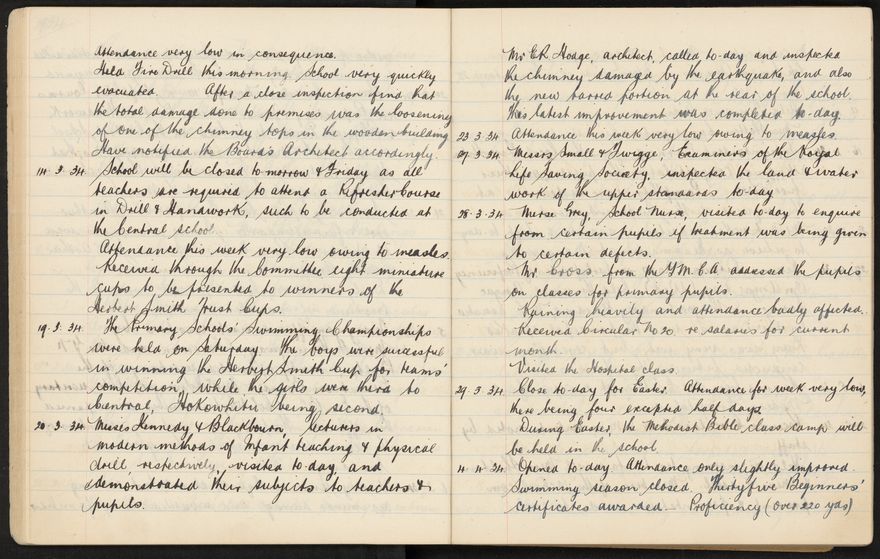 Attendance very low in consequence.
Held Fire Drill this morning. School very quickly
evacuated. After a close inspection find that
the total damage done to premises was the loosening
of one of the chimney tops in the wooden building
Have notified the Board's Architect accordingly.
14.3.34. School will be closed to-morrow & Friday as all
teachers are required to attend a Refresher Course
in Drill & Handwork, such to be conducted at
the Central school.
Attendance this week very low owing to measles.
Received through the Committee eight miniature
cups to be presented to winners of the
Herbert Smith Trust Cups.
19.3.34. The Primary Schools' Swimming Championships
were held on Saturday. The boys were successful
in winning the Herbert Smith Cup for teams'
competition, while the girls were third to
Central, Hokowhitu being second,
20.3.34 Misses Kennedy & Blackbourn, lecturers in
modern methods of Infant teaching & physical
drill, respectively, visited to-day and
demonstrated their subjects to teachers &
pupils.
Mr E.R. Hodge, architect, called to-day and inspected
the chimney damaged by the earthquake, and also
the new tarred portion at the rear of the school.
This latest improvement was completed to-day.
23.3.34 Attendance this week very low owing to measles.
27.3.34. Messrs Small & Twigge, Examiners of the Royal
Life Saving Society, inspected the land & water
work of the upper standards to-day
28.3.34 Nurse Grey, School Nurse, visited to-day to enquire
from certain pupils if treatment was being given
to certain defects.
Mr Cross from the Y.M.C.A. addressed the pupils
on classes for primary pupils.
Raining heavily and attendance badly affected.
Received Circular No 20 re salaries for current
month.
Visited the Hospital class.
29.3.34 Close to-day for Easter. Attendance for week very low,
there being four excepted half days.
During Easter, the Methodist Bible class camp will
be held in the school
11.4.34. Opened to-day. Attendance only slightly improved.
Swimming season closed. Thirtyfive Beginners'
certificates awarded. Proficiency (over 220 yds)